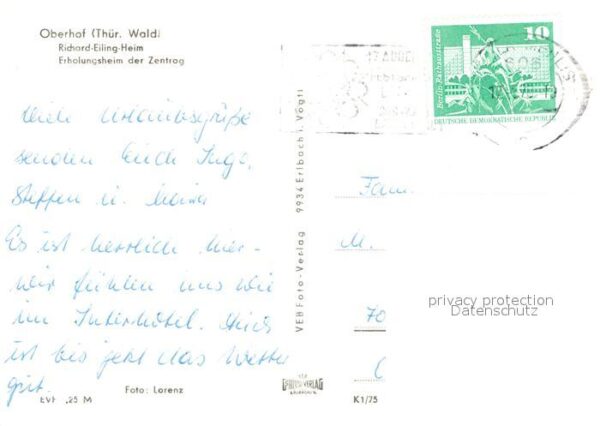 Oberhof (Thür. Wald)
Richard-Eiling-Heim
Erholungsheim der Zentrag
Viele Urlaubsgrüße
senden Euch Inge,
Steffen u.
Es ist herrlich hier -
wir fühlen uns wie
im Interhotel. Auch
ist bis jetzt das Wetter
gut.
Foto: Lorenz
EVP ,25 M
VEB Foto-Verlag 9934 Erlbach i. Vogtl
VEB
FOTO-VERLAG
ERLBACH
K1/75
10
Berlin-Rathausstraße
DEUTSCHE DEMOKRATISCHE REPUBLIK
Fam.
M.
70
privacy protection
Datenschutz